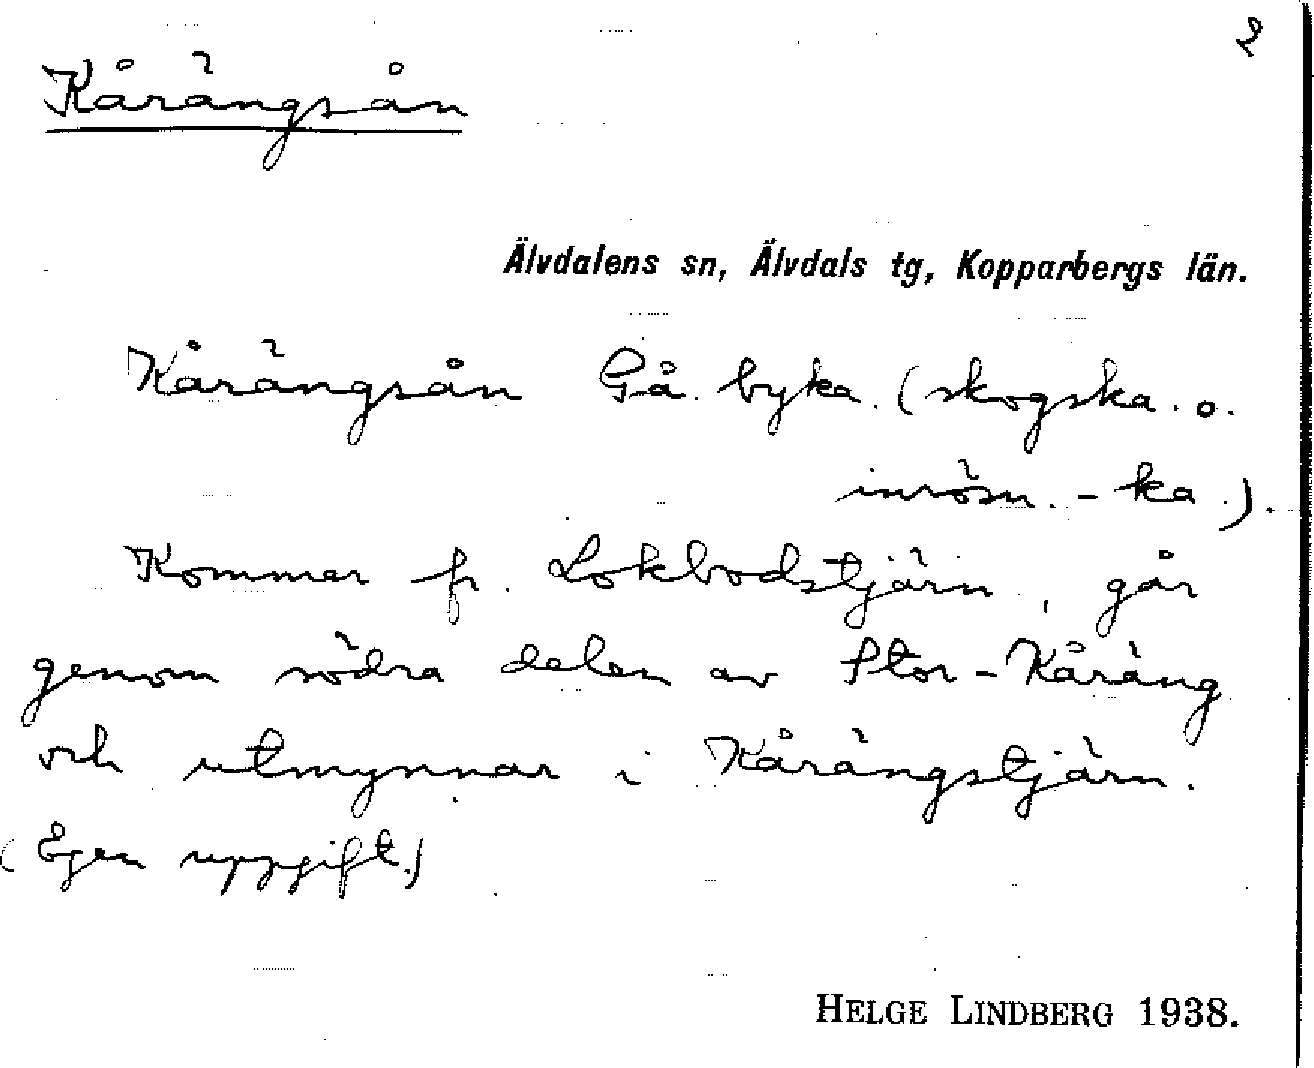 2
Kårängsån
Älvdalens sn, Älvdals tg, Kopparbergs län.
Kårängsån Gå. byka. (skogska. o.
inrösn. - ka.).
Kommer fr. Lokbodstjärn, går
genom södra delen av Stor-Kåräng
och utmynnar i Kårängstjärn.
(Egen uppgift.)
HELGE LINDBERG 1938.